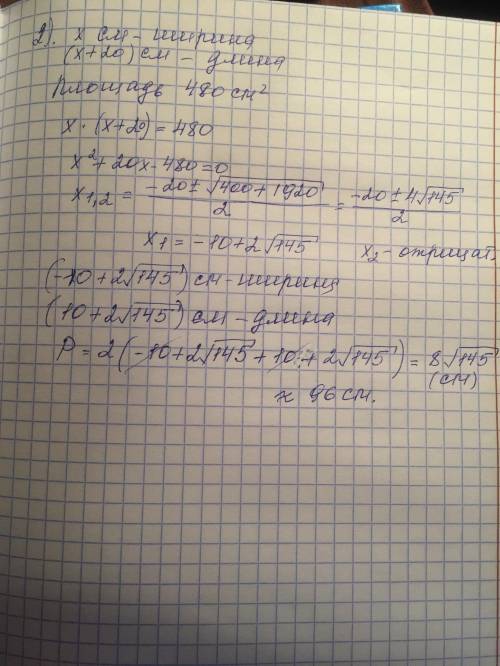 2). x см - ширина
(x+20) см - длина
Площадь 480 см²
x · (x+20) = 480
x² + 20x - 480 = 0
x₁,₂ = (-20 ± √(400 + 1920))/2 = (-20 ± 4√145)/2
x₁ = -10 + 2√145    x₂ - отрицат.
(-10 + 2√145) см - ширина
(10 + 2√145) см - длина
P = 2(-10 + 2√145 + 10 + 2√145) = 8√145 (см)
≈ 96 см.